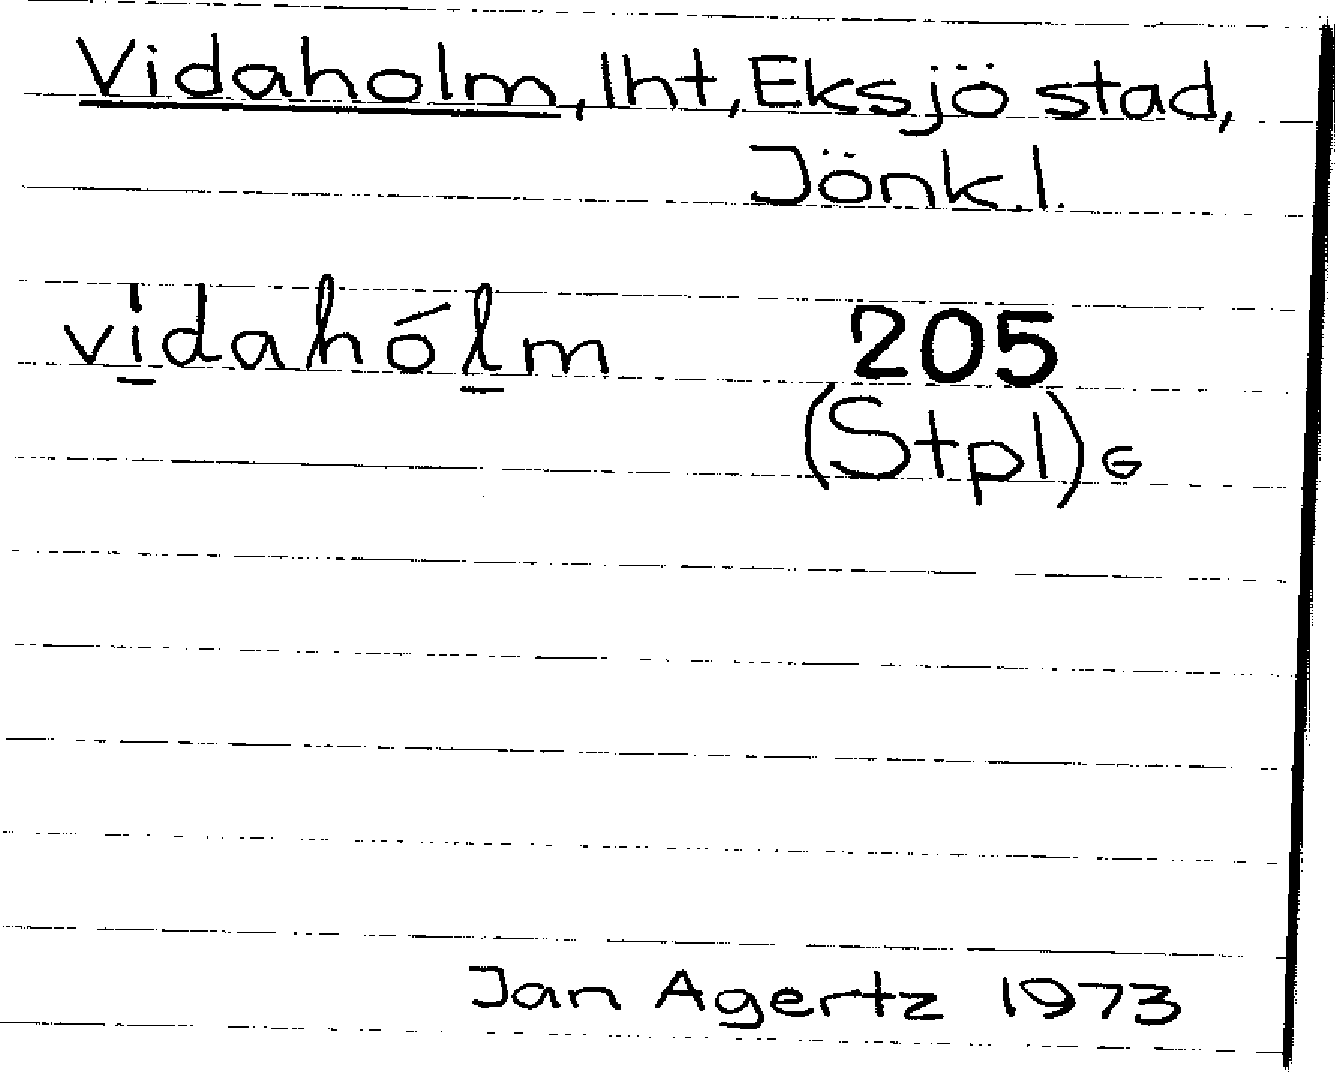 Vidaholm, lht, Eksjö stad,
Jönk.l.
vidahólm 205
(Stpl) G
Jan Agertz 1973